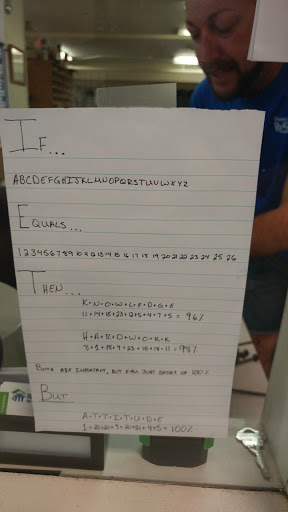 IF...
ABCDEFGHIJKLMNOPQRSTUVWXYZ
EQUALS...
1 2 3 4 5 6 7 8 9 10 11 12 13 14 15 16 17 18 19 20 21 22 23 24 25 26
THEN...
K+N+O+W+L+E+D+G+E
11+14+15+23+12+5+4+7+5 = 96%
H+A+R+D+W+O+R+K
8+1+18+4+23+15+18+11 = 98%
BOTH ARE IMPORTANT, BUT FALL JUST SHORT OF 100%
BUT
A+T+T+I+T+U+D+E
1+20+20+9+20+21+4+5 = 100%